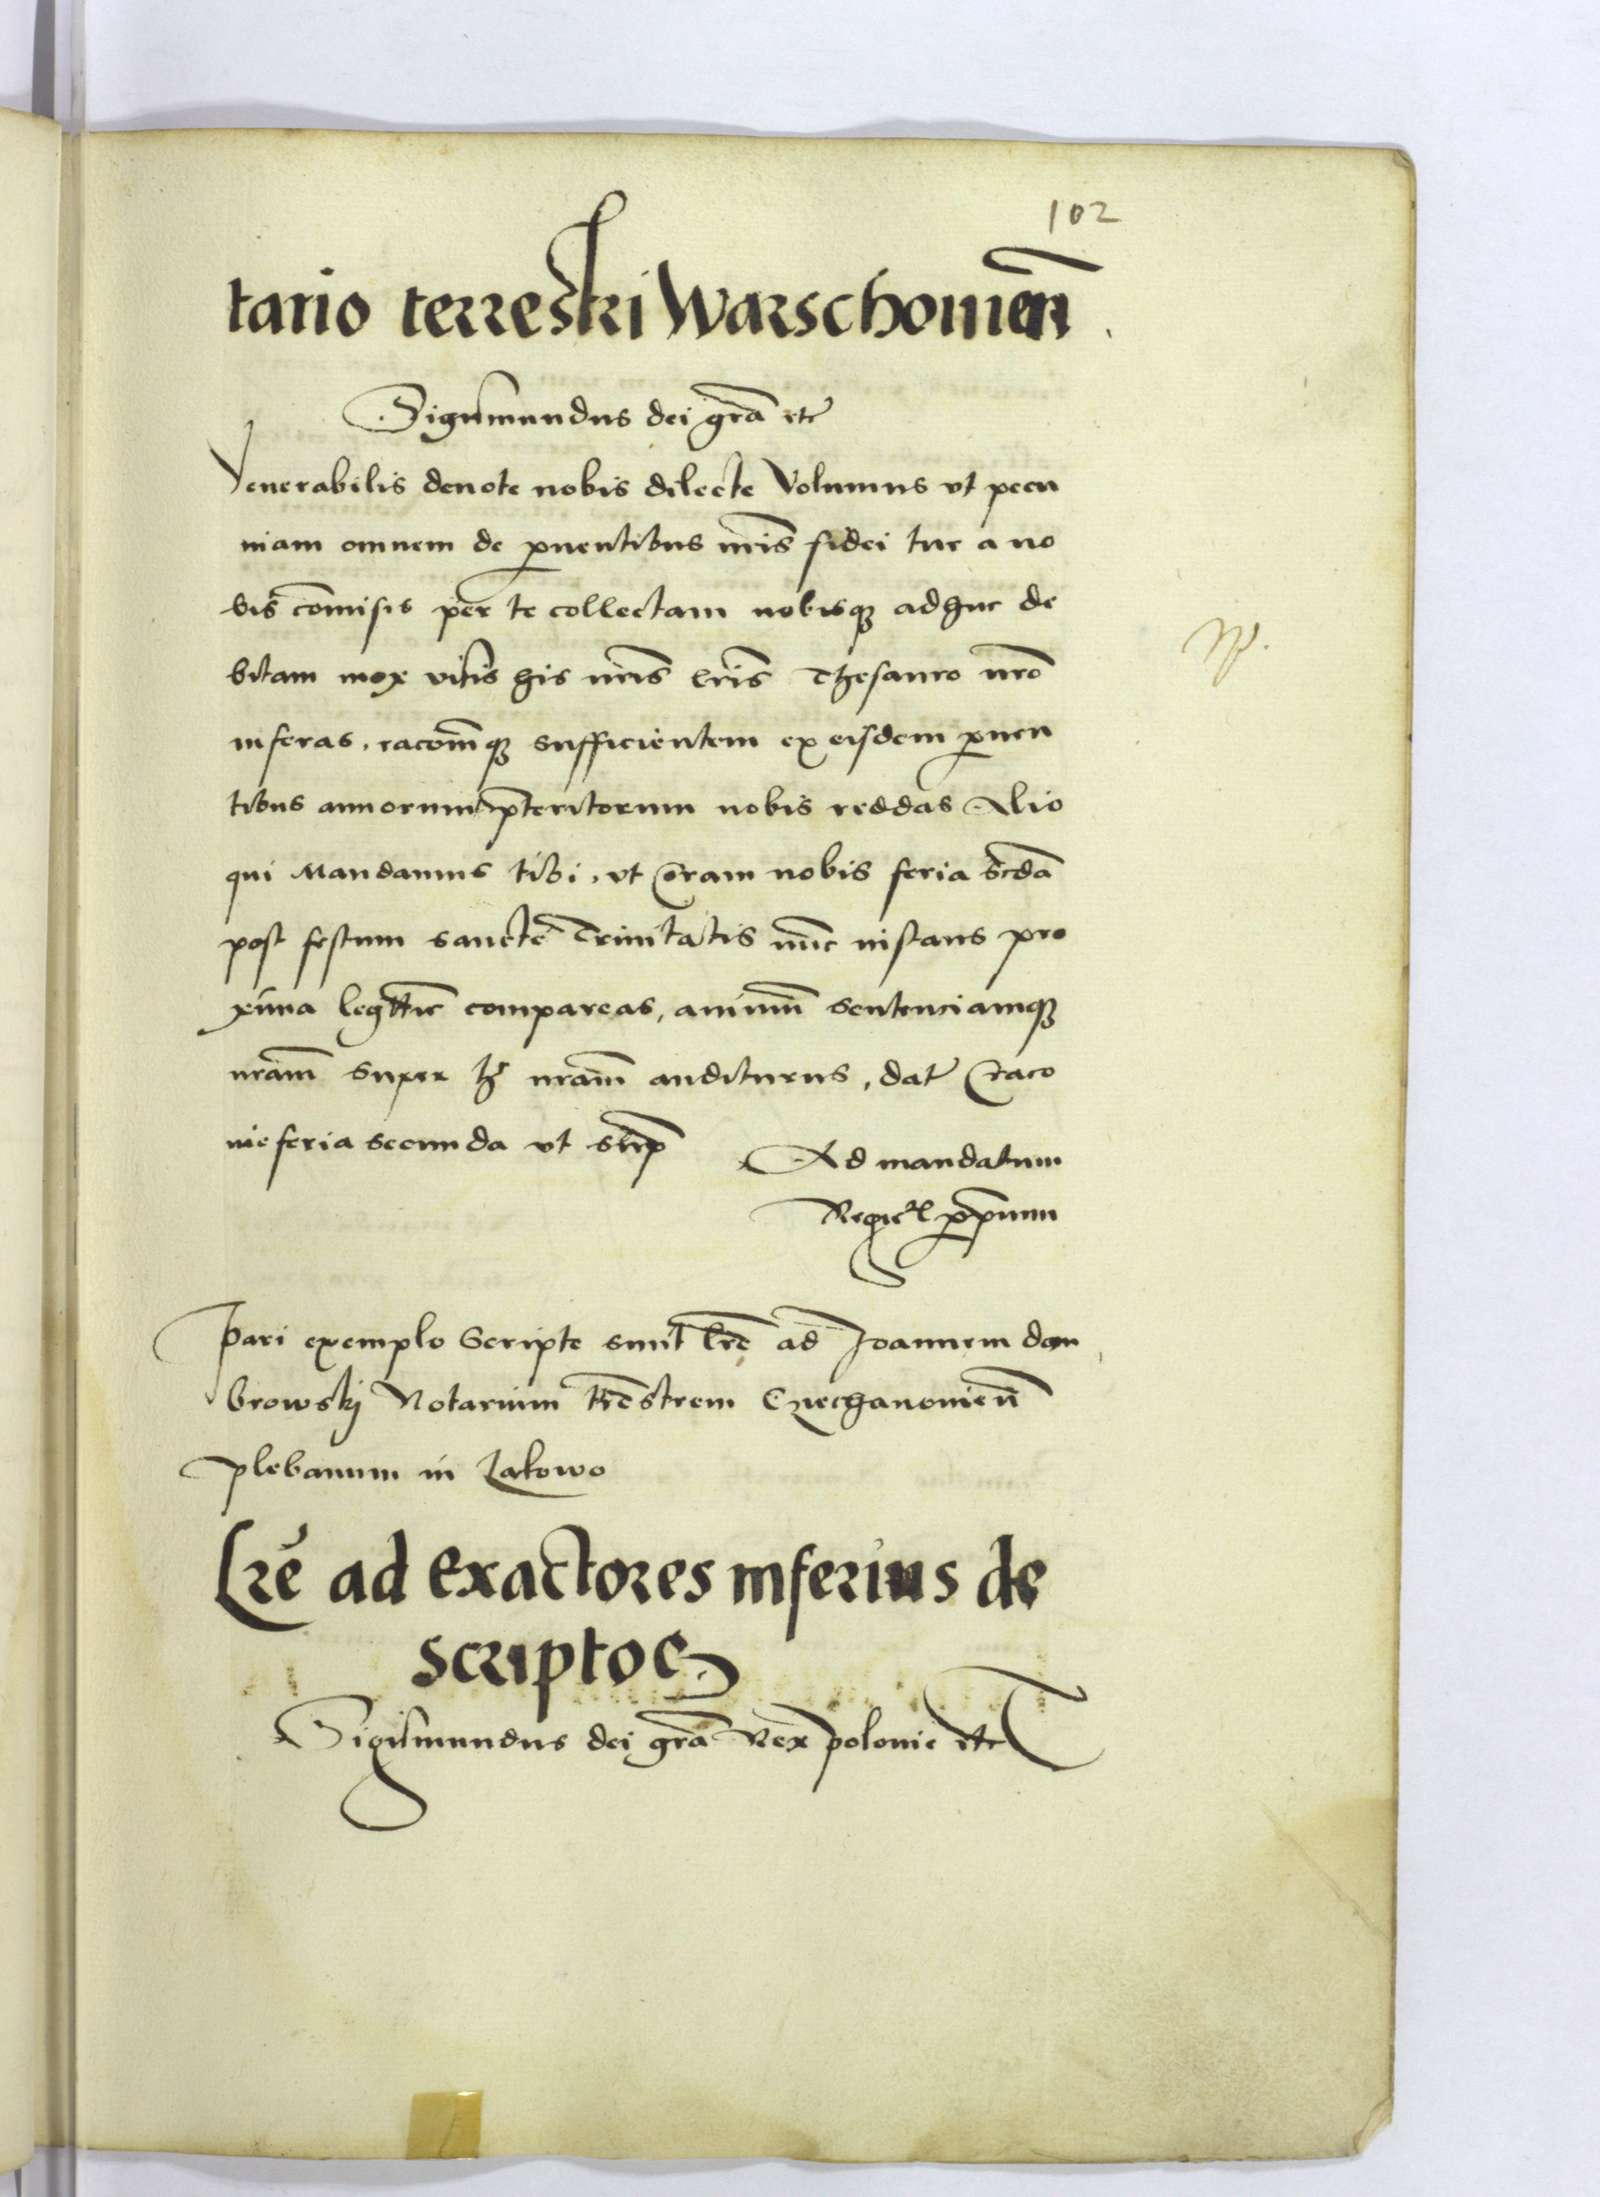 102
tario terrestri Warschouien̄
Sigismundus dei gr̄a etc
Venerabilis deuote nobis dilecte Volumus vt pecu
niam omnem de ꝓuentibus nr̄is fidei tue a no
bis cōmissis per te collectam nobisqꝫ adhuc de
bitam mox visis his nr̄is lr̄is Thesauro nr̄o
inferas, racōmqꝫ sufficientem ex eisdem ꝓuen
tibus annorum p̄teritorum nobis reddas Alio
qui Mandamus tibi, vt coram nobis feria scd̄a
post festum sancte Trinitatis nūc instans pro
xima legittie compareas, animū sentenciamqꝫ
nr̄am super nr̄am auditurus, dat Craco
uie feria secunda vt sup̄
Ad mandatum
Regie ꝓp̄rium
Pari exemplo Scripte sunt lr̄e ad Joannem dom
browskj Notarium tr̄estrem Czechanouien̄
plebanum in Latowo
Lr̄e ad Exactores inferius de
scriptos
Sigismundus dei gr̄a Rex polonie etc